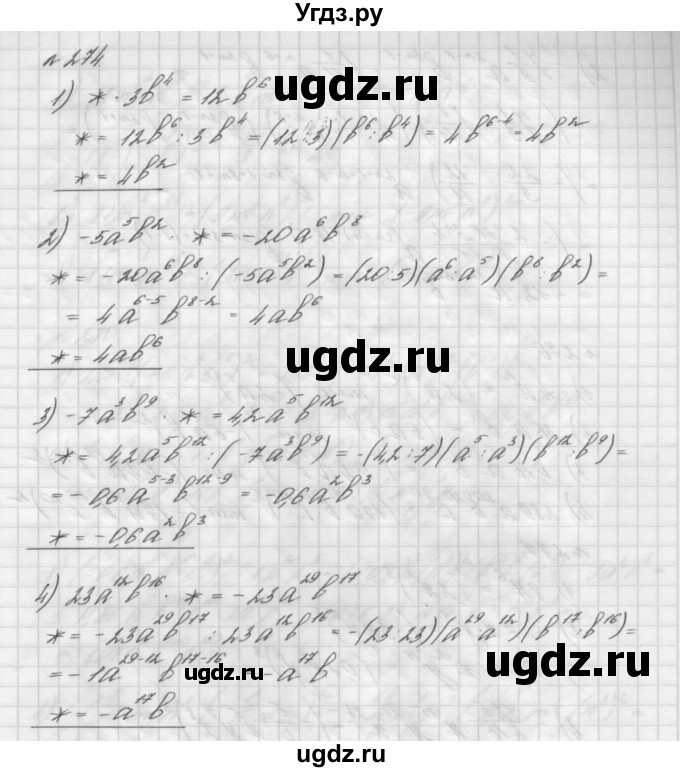 Угдз.ру
№ 274.
1) * · 3b⁴ = 12b⁶
ugdz.ru
* = 12b⁶ : 3b⁴ = (12 : 3)(b⁶ : b⁴) = 4b⁶⁻⁴ = 4b²
* = 4b²
2) -5a⁵b² · * = -20a⁶b⁸
* = -20a⁶b⁸ : (-5a⁵b²) = (20:5)(a⁶:a⁵)(b⁸ : b²) =
= 4a⁶⁻⁵ b⁸⁻² = 4ab⁶
* = 4ab⁶
ugdz.ru
3) -7a³b⁹ · * = 4,2a⁵b¹²
* = 4,2a⁵b¹² : (-7a³b⁹) = -(4,2 : 7)(a⁵ : a³)(b¹² : b⁹) =
= -0,6a⁵⁻³ b¹²⁻⁹ = -0,6a²b³
* = -0,6a²b³
4) 23a¹²b¹⁶ · * = -23a²⁹b¹⁷
* = -23a²⁹b¹⁷ : 23a¹²b¹⁶ = -(23:23)(a²⁹:a¹²)(b¹⁷ : b¹⁶) =
= -1a²⁹⁻¹² b¹⁷⁻¹⁶ = -a¹⁷b
ugdz.ru
ugdz.ru
* = -a¹⁷b
ugdz.ru